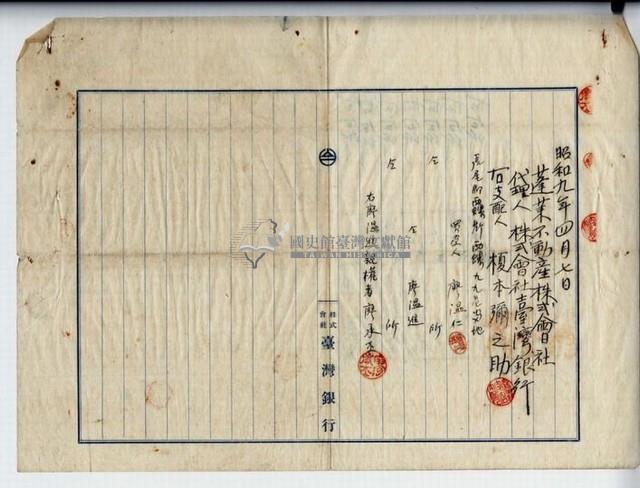 昭和九年四月七日
蓬萊不動産株式會社
代理人 株式會社臺灣銀行
右支配人 榎本彌之助
虎尾郡西螺街西螺九九九番地
買受人 廖溫仁
仝 所
仝 廖溫進
仝 所
右廖溫進親權者廖承丕
株式會社 臺灣銀行
國史館臺灣文獻館
TAIWAN HISTORICA